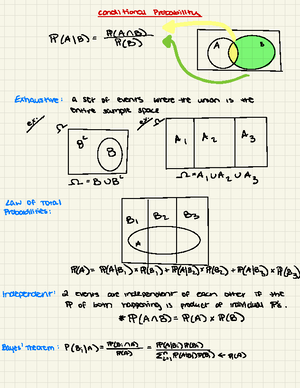 Conditional Probability
P(A|B) = P(A∩B) / P(B)
A B
Exhaustive: A set of events where the union is the
entire sample space
ex: Ω ex: Ω
B^c B A₁ A₂ A₃
Ω = B ∪ B^c Ω = A₁ ∪ A₂ ∪ A₃
Law of Total
Probabilities:
B₁ B₂ B₃
A
P(A) = P(A|B₁) × P(B₁) + P(A|B₂) × P(B₂) + P(A|B₃) × P(B₃)
Independent: 2 events are independent of each other if the
P of both happening is product of individual P's.
* P(A∩B) = P(A) × P(B)
Bayes' Theorem: P(B₁|A) = P(B₁∩A) / P(A) =